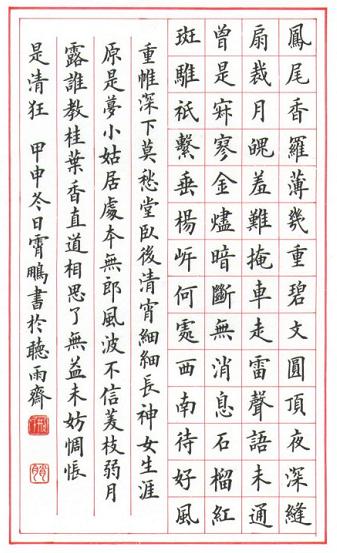 鳳尾香羅薄幾重碧文圓頂夜深縫
扇裁月魄羞難掩車走雷聲語未通
曾是寂寥金燼暗斷無消息石榴紅
斑騅祇繫垂楊岸何處西南待好風
重帷深下莫愁堂臥後清宵細細長神女生涯
原是夢小姑居處本無郎風波不信菱枝弱月
露誰教桂葉香直道相思了無益未妨惆悵
是清狂 甲申冬日霄鵬書於聽雨齋